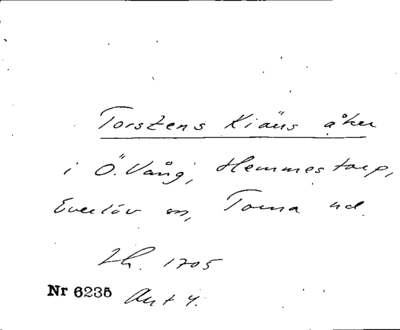 Torstens Kiärs åker
i Ö. Vång, Hemmestorp,
Everlöv sn, Torna hd.
Lh. 1705
Nr 6235 Akt 4.